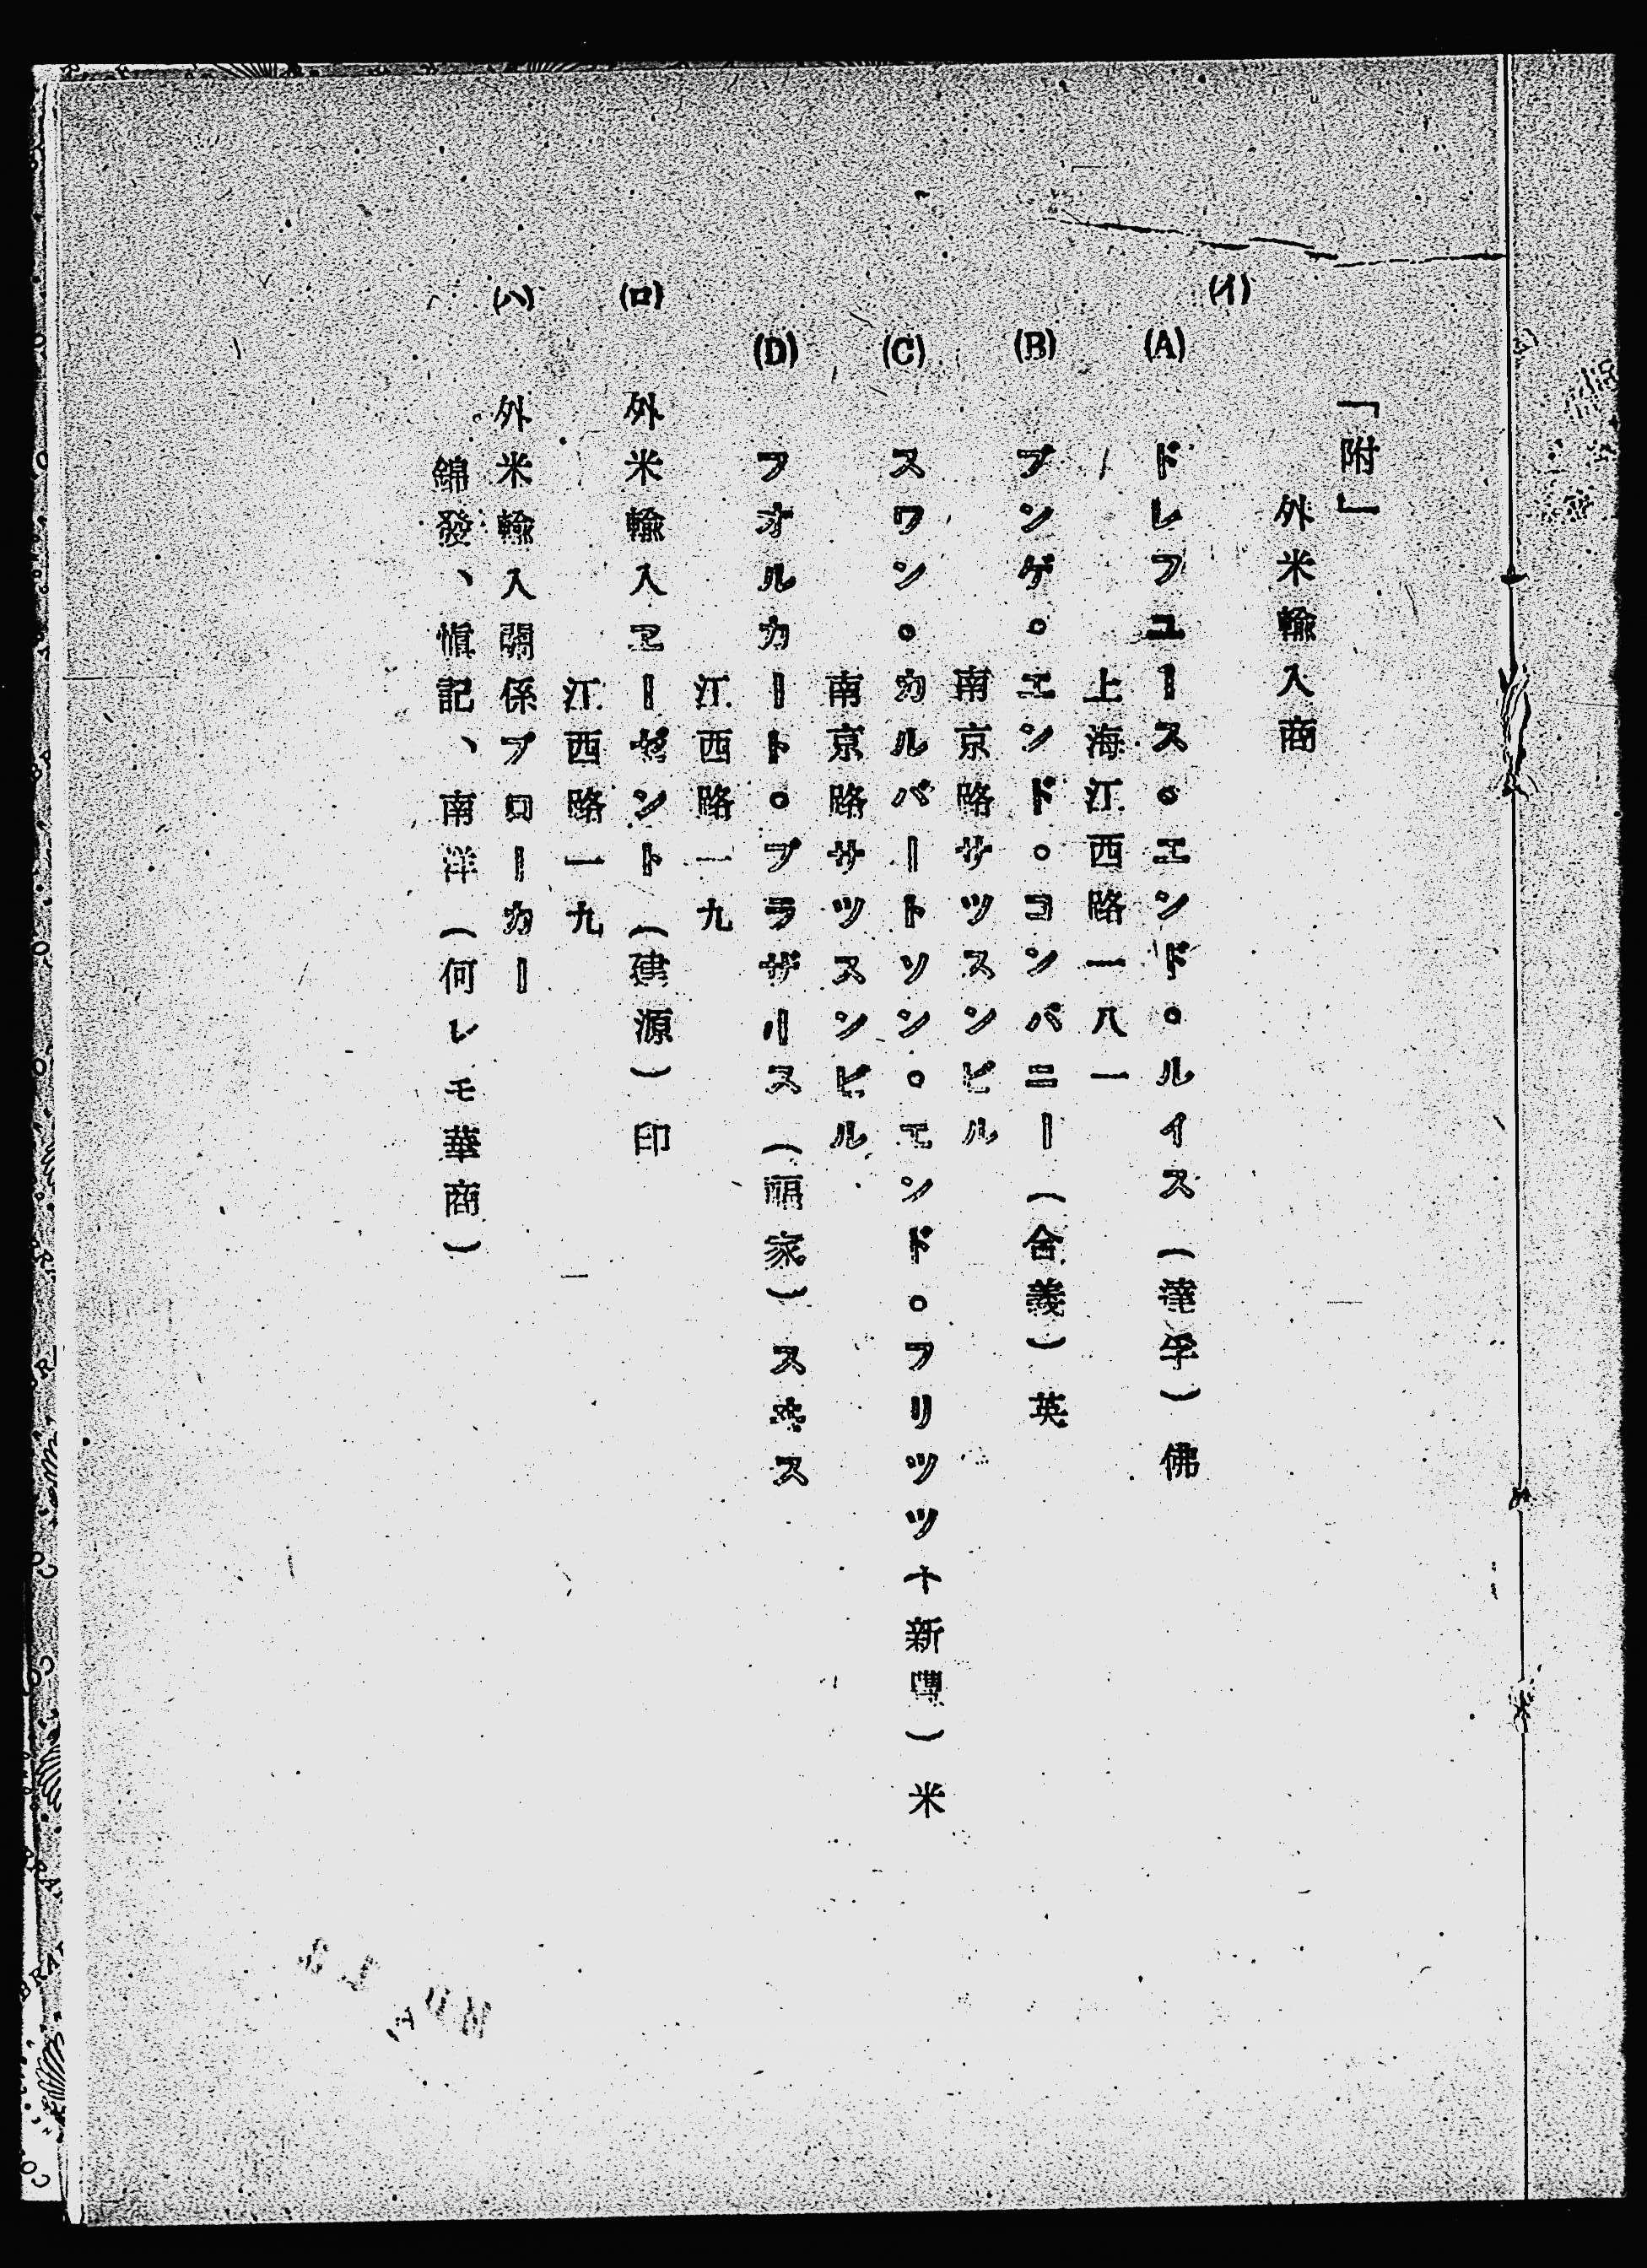 「附」
(イ) 外米輸入商
(A) ドレフユース。エンド。ルイス(達孚)佛
上海江西路一八一
(B) ブンゲ。エンド。コンパニー(合義)英
南京路サツスンビル
(C) スワン。カルバートソン。エンド。フリツツ(新豐)米
南京路サツスンビル
(D) フオルカート。ブラザース( 家)スヰス
江西路一九
(ロ) 外米輸入エーゼント(建源)印
江西路一九
(ハ) 外米輸入關係ブローカー
錦發、愼記、南洋(何レモ華商)